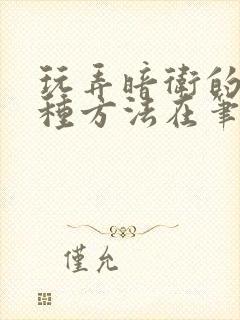 玩弄暗衛的
種方法在筆
僅允